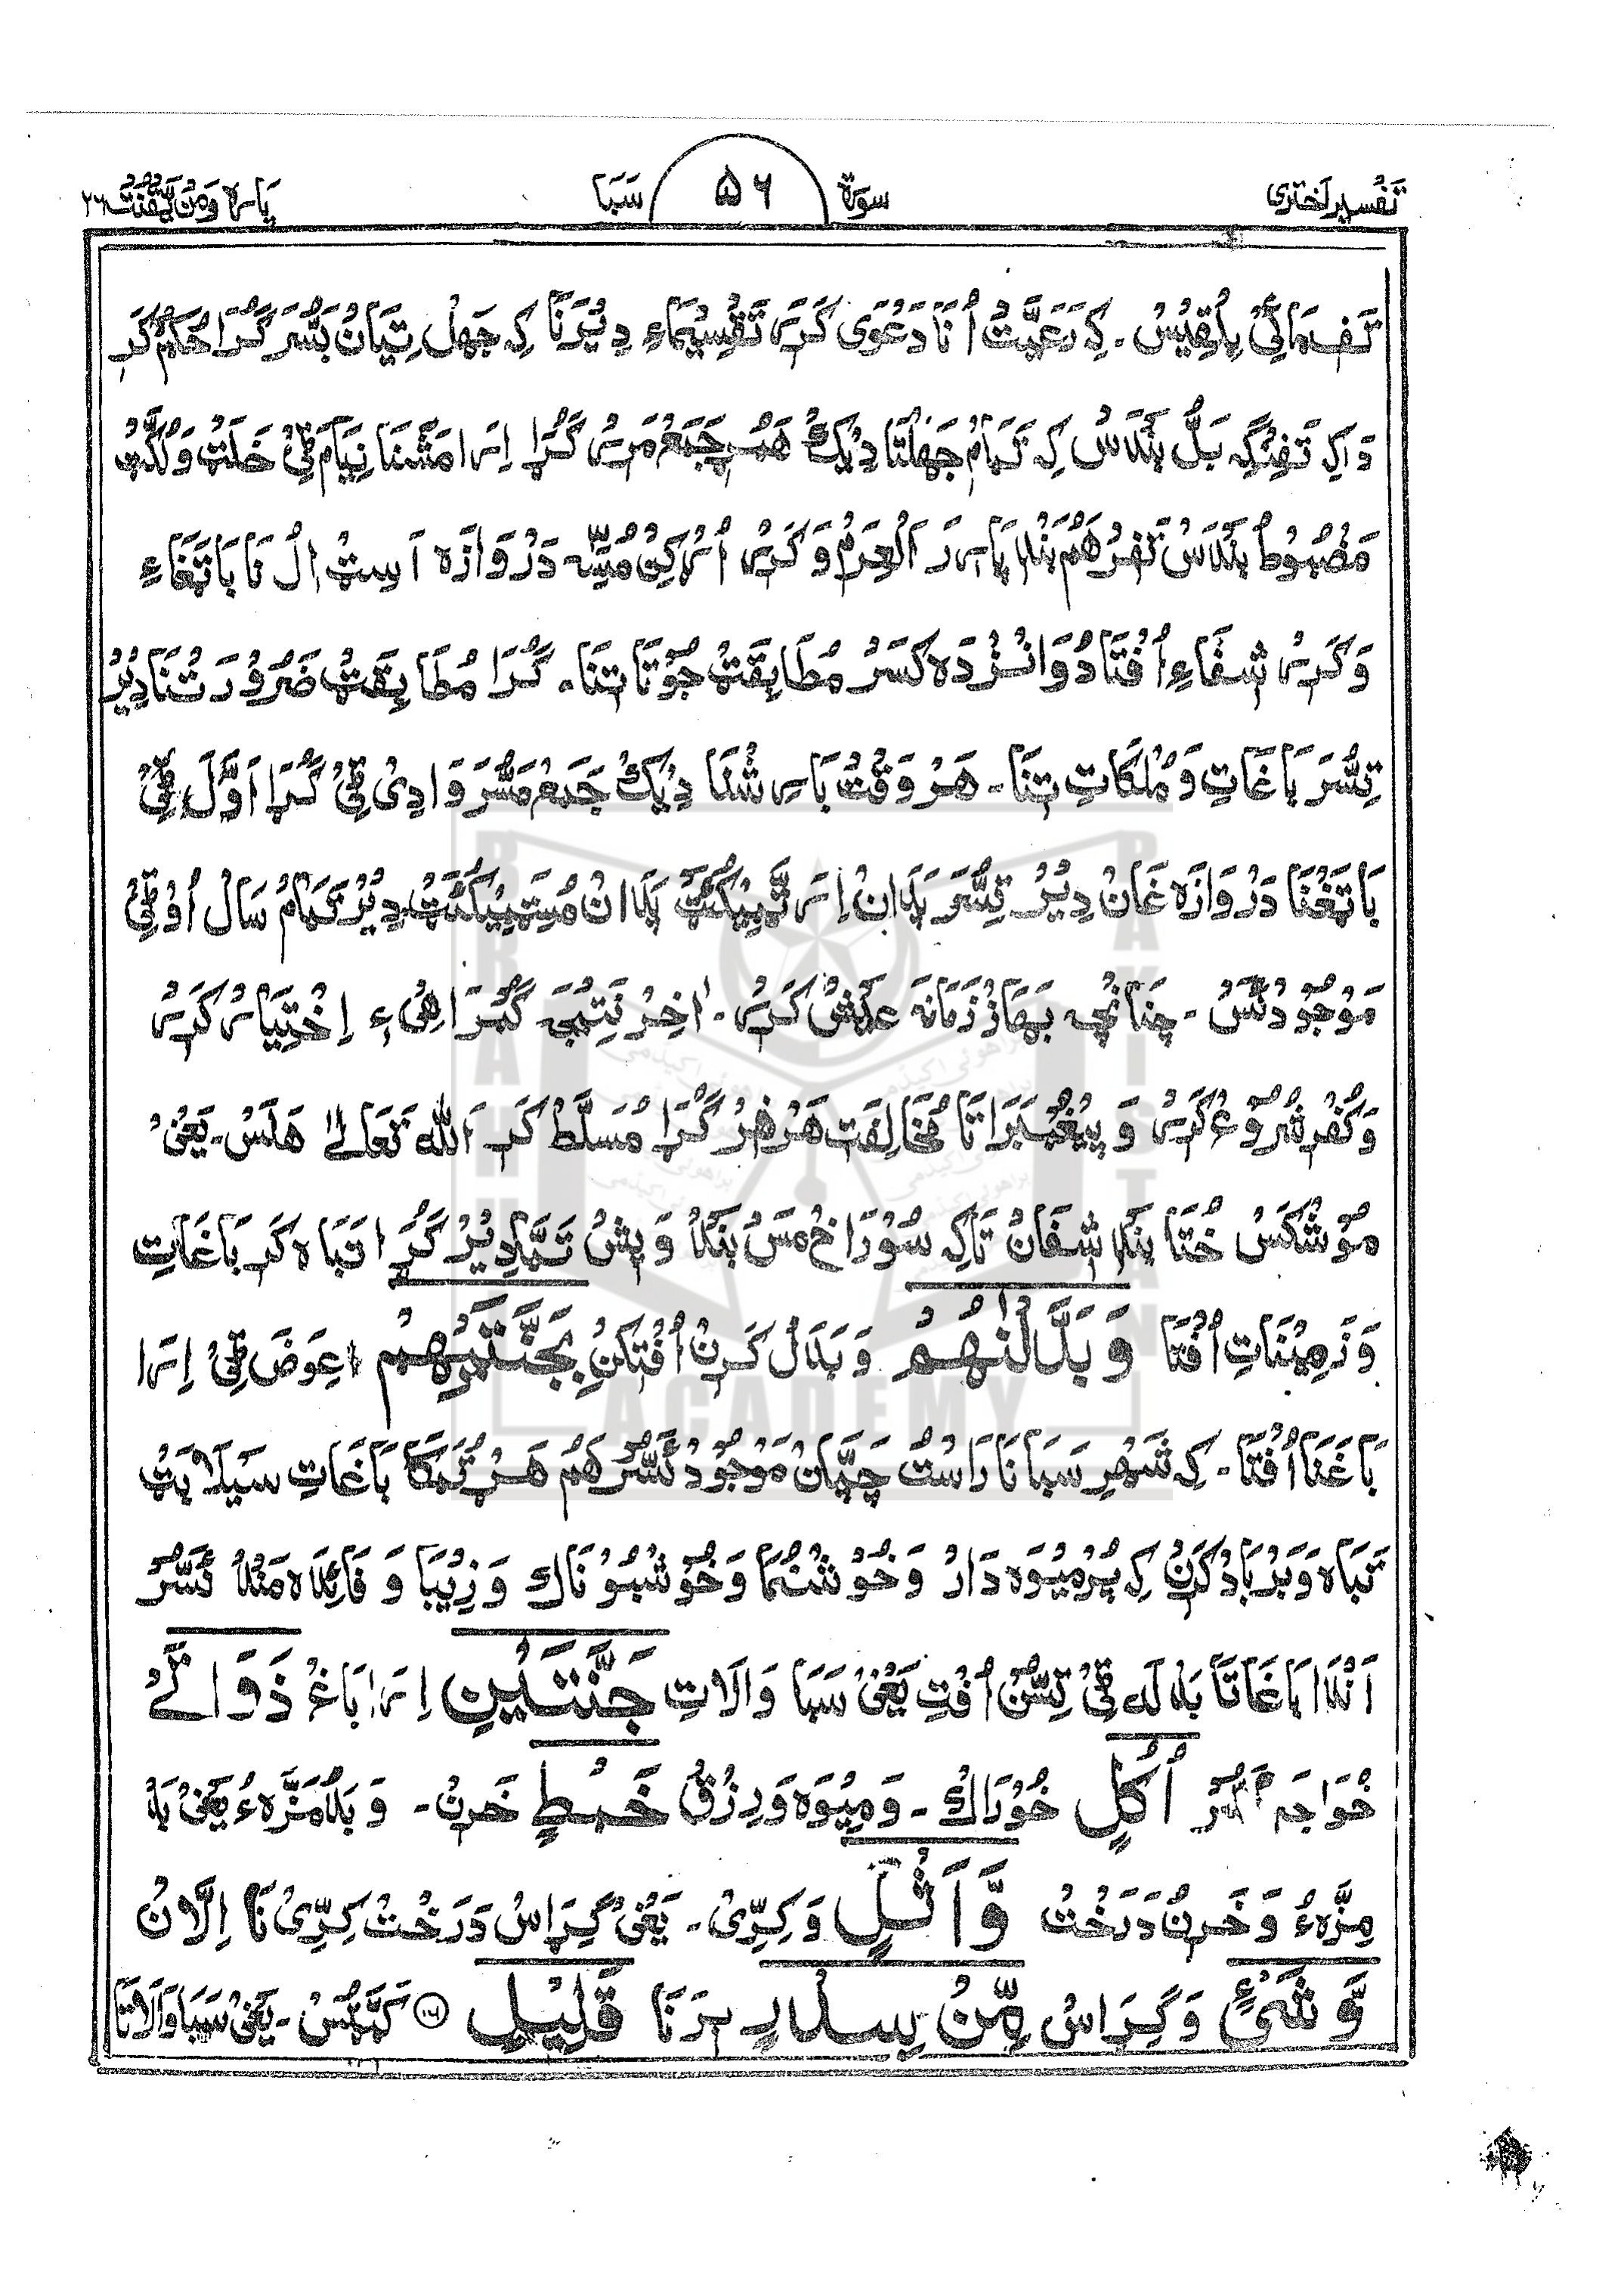 تَفسیرِ اَختری سورۃ ۵۶ سَبَا پَارہ وَمَن یَّقْنُتْ ۲۲
تَفہمائی بِلْقِیْسْ۔ کِہ رَعِیَّتْ اُنَا دَعْوٰی کَرِہ تَقْسِیْمَاءِ دِیْرَنَا کِہ جَھل تِیَانْ بَسُّرَ گُڑَا حُکم کَرِ
دَاکِہ تَفِنْگِہ بَلُّ بَنْدَسْ کِہ تَمَامْ جَھلتَا دِیْکْ ھَب جَمَع مَرِہ گُڑَا اِرَا مَشْنَا نِیَام ٹِیْ خَلَتْ وَ لُکْتْ
مَضْبُوطُ بَنْدَسْ تَفِرْ ھَمْ بَنْد پَارَہ اَلْعِرَمْ وَ کَرِہ اُرکِنْ مُسِّہ دَرْوَازَہ اَسِٹ اِلْ نَا بَاتَغَاءِ
وَ کَرِہ شِفَاءِ اُفْتَا دُوَانْزْدَہ کَسَرُ مُطَابِقَتْ جُوْتَا تِنَا۔ گُڑَا مُطَابِقَتْ ضَرُوْرَتْنَا دِیْرُ
تِسُّرَ بَاغَاتِ وَ مُلْکَاتِ تِنَا۔ ھَرْ وَقْتْ بَارِشْنَا دِیْکْ جَمَعْ مَسُّرَ وَادِیْ ٹِیْ گُڑَا اَوَّلْ ٹِیْ
بَاتَغْنَا دَرْوَازَہ غَانْ دِیْرُ تِسُّرَ پَدَانْ اِرَٹِّیْکْتْ پَدَانْ مُسِٹِّیْکْتْ دِیْرْ تَمَامْ سَالْ اُوْٹِیْ
مَوْجُوْدْ ئَسْ۔ چَنَانْچِہ بَھَازْ زَمَانَہ عَیْشْ کَرِہ۔ اٰخِرْ نَتِیْجَہ گُمْرَاھِیْءِ اِخْتِیَارْ کَرِہ
وَ کُفْر شُرُوْع کَرِہ وَ پِیْغَمْبَرَاتَا مُخَالِفَتْ ھَرْفِرْ گُڑَا مُسَلَّطْ کَرِ اَللّٰہ تَعَالٰی ھَلَسْ۔ یَعْنِیْ
مُوْشْکَسْ خُتَا بَنْد شِفَانْ تَاکِہ سُوْرَاخْ مَسْ بَنْدْ وَ بِشْ تَمَّا دِیْرُ گُڑَا تَبَاہ کَرِ بَاغَاتِ
وَ زَمِیْنَاتِ اُفْتَا وَبَدَّلْنٰھُمْ وَ بَدَلْ کَرِنْ اُفْتِکِنْ بِجَنَّتَیْھِمْ عِوَضْ ٹِیْ اِرَا
بَاغَنَا اُفْتَا۔ کِہ شَھْرِ سَبَا نَا رَاسْتْ چَپَّانْ مَوْجُوْدْ ئَسُّرْ ھَمْ ھَرْ تُمَکَّا بَاغَاتِ سَیْلَابَتْ
تَبَاہ وَ بَرْبَادْ کَرِنْ کِہ پُرْمِیْوَہ دَارْ وَ خُوْشْنُمَا وَ خُوْشْبُوْنَاکْ وَ زِیْبَا وَ فَائِدَہ مَنْدُ ئَسُّرْ
اَنْدَا بَاغَاتَا بَدْلَہ ٹِیْ تِسُّنْ اُفْتِ یَعْنِیْ سَبَا وَالَاتِ جَنَّتَیْنِ اِرَا بَاغْ ذَوَاتَیْ
خُوَاجَہ اُكُلٍ خُوْرَاکْ۔ وَ مِیْوَہ وَ رِزْقْ خَمْطٍ خَرِنْ۔ وَ بَدْمَزَّہءُ یَعْنِیْ بَدْ
مِزَّہءُ وَ خَرِنْ دَرَخْتْ وَّاَثْلٍ وَ کِرِّیْ۔ یَعْنِیْ گِرَاسْ دَرَخْتْ کِرِّیْ نَا اِلَّانْ
وَّشَیْءٍ وَ گِرَاسْ مِّنْ سِدْرٍ بَرْنَا قَلِیْلٍ ۱۶ کَمِّسْ۔ یَعْنِیْ سَبَا وَالَاتَا
BRAHUI ACADEMY PAKISTAN
براھوئی اکیڈمی